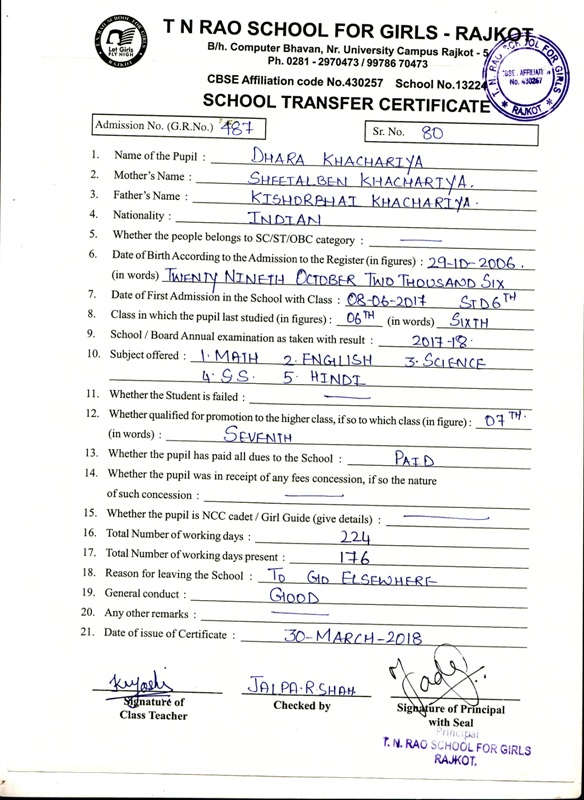 T N RAO SCHOOL FOR GIRLS - RAJKOT
B/h. Computer Bhavan, Nr. University Campus Rajkot - 5
Ph. 0281 - 2970473 / 99786 70473
CBSE Affiliation code No.430257 School No.13224
SCHOOL TRANSFER CERTIFICATE
Let Girls FLY HIGH
T. N. RAO SCHOOL FOR GIRLS
CBSE. AFFILIATI
No. 430257
RAJKOT.
Admission No. (G.R.No.) 487
Sr. No. 80
1. Name of the Pupil : DHARA KHACHARIYA
2. Mother's Name : SHEETALBEN KHACHARIYA.
3. Father's Name : KISHORBHAI KHACHARIYA.
4. Nationality : INDIAN
5. Whether the people belongs to SC/ST/OBC category :
6. Date of Birth According to the Admission to the Register (in figures) : 29-10-2006.
(in words) TWENTY NINETH OCTOBER TWO THOUSAND SIX
7. Date of First Admission in the School with Class : 08-06-2017 STD 6TH
8. Class in which the pupil last studied (in figures) : 06TH (in words) SIXTH
9. School / Board Annual examination as taken with result : 2017-18.
10. Subject offered : 1. MATH 2. ENGLISH 3. SCIENCE
4. S.S. 5. HINDI
11. Whether the Student is failed :
12. Whether qualified for promotion to the higher class, if so to which class (in figure) : 07TH.
(in words) : SEVENTH
13. Whether the pupil has paid all dues to the School : PAID
14. Whether the pupil was in receipt of any fees concession, if so the nature
of such concession :
15. Whether the pupil is NCC cadet / Girl Guide (give details) :
16. Total Number of working days : 224
17. Total Number of working days present : 176
18. Reason for leaving the School : TO GO ELSEWHERE
19. General conduct : GOOD
20. Any other remarks :
21. Date of issue of Certificate : 30-MARCH-2018
JALPA.R.SHAH
Signature of Class Teacher
Checked by
Signature of Principal with Seal
Principal
T. N. RAO SCHOOL FOR GIRLS
RAJKOT.